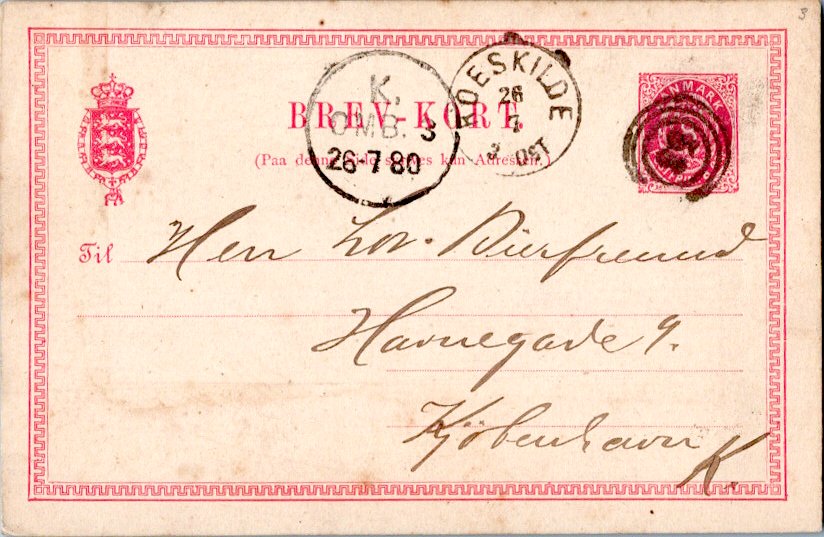 3
BREV-KORT.
(Paa denne Side skrives kun Adressen.)
K.
OMB. 3
26 7 80
ROESKILDE
26
7
3 POST
DANMARK
Til Herr Lov. Bierfreund
Havnegade 9.
Kjöbenhavn
K.